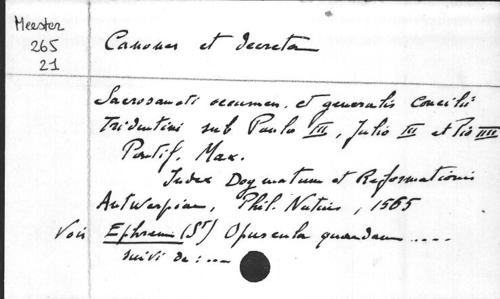 Meester
265
21
Canones et decreta
Sacrosancti oecumen. et generalis Concilii
Tridentini sub Paulo III, Julio III et Pio IIII
Pontif. Max.
Index Dogmatum et Reformationis
Antwerpiae, Phil. Nutius, 1565
Voir Ephrem (St) Opuscula quaedam ....
suivi de : ...